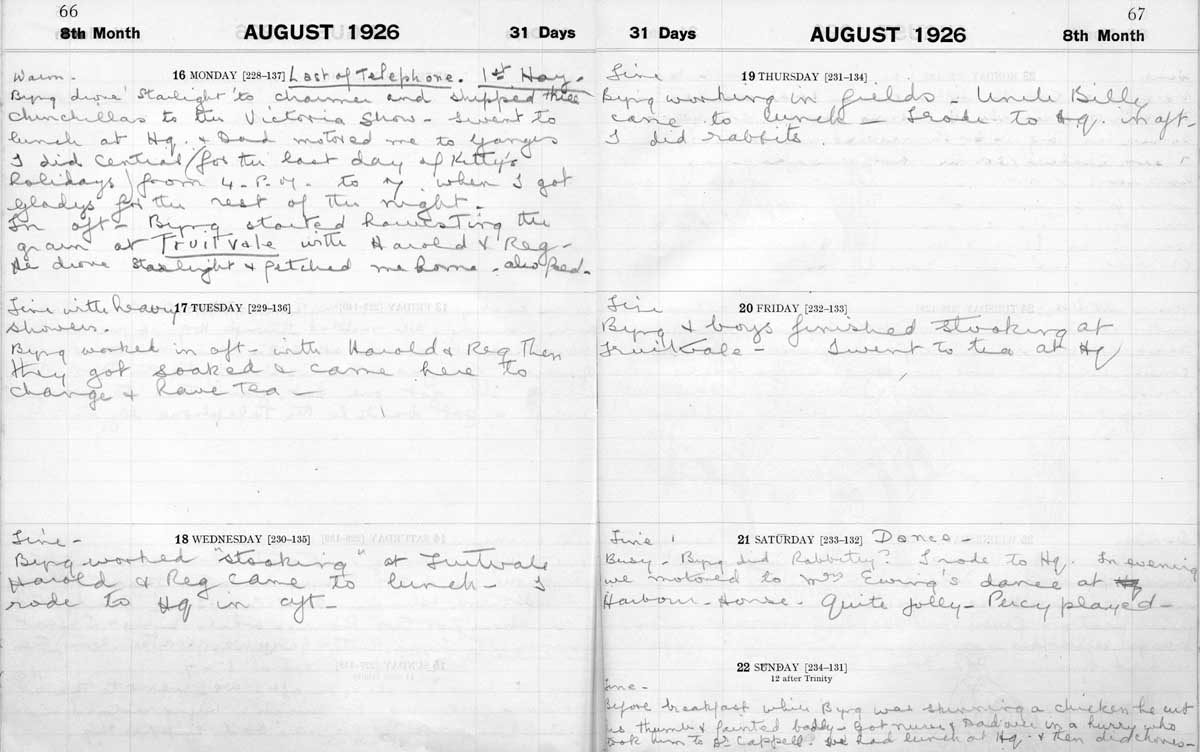 66
8th Month AUGUST 1926 31 Days
Warm -
16 MONDAY [228-137] Last of Telephone. 1st Hay.
Byng drove 'Starlight' to charmer and shipped three
Chinchillas to the Victoria Show - I went to
lunch at Hq. & Dad motored me to Ganges
I did Central (for the last day of Kitty's
holidays) from 4. P.M. to when I got
Gladys for the rest of the night.
In aft - Byng started harvesting the
grain at Fruitvale with Harold & Reg -
He drove Starlight & fetched me home - also feed -
Fine with heavy 17 TUESDAY [229-136]
showers.
Byng worked in aft - with Harold & Reg Then
they got soaked & came here to
change & have Tea -
Fine - 18 WEDNESDAY [230-135]
Byng worked "stooking" at Fruitvale
Harold & Reg came to lunch - I
rode to Hq in aft -
67
31 Days AUGUST 1926 8th Month
Fine 19 THURSDAY [231-134]
Byng working in fields - Uncle Billy
came to lunch - I rode to Hq. in aft -
I did rabbits.
Fine 20 FRIDAY [232-133]
Byng & boys finished stooking at
Fruitvale - I went to tea at Hq
Fine 21 SATURDAY [233-132] Dance -
Busy - Byng did Rabbitry? I rode to Hq. In evening
we motored to Mrs Ewing's dance at Hq
Harbour - House - Quite jolly - Percy played -
22 SUNDAY [234-131]
12 after Trinity
Fine -
Before breakfast while Byng was skinning a chicken he cut
his thumb & fainted badly - got nurse & Dad over in a hurry who
took him to Dr Cappell. We had lunch at Hq. & then did chores -